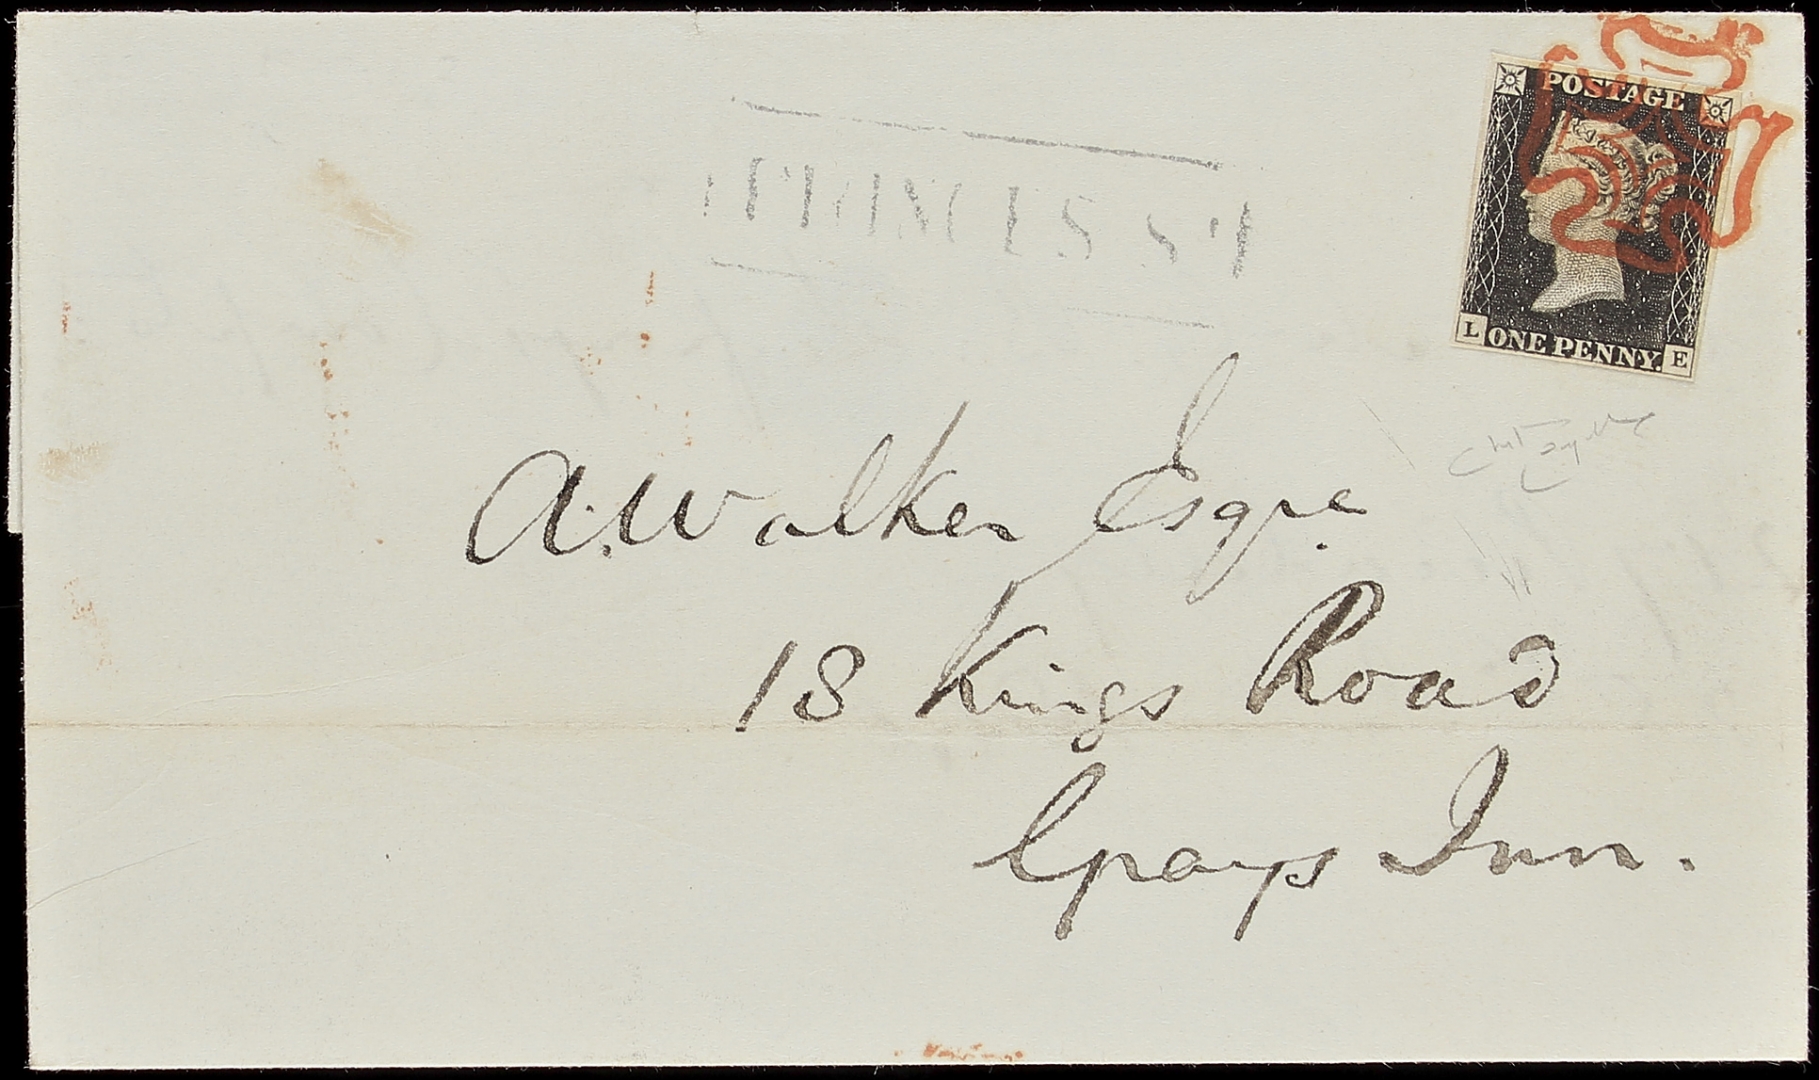 POSTAGE
L ONE PENNY. E
A. Walker Esqre.
18 Kings Road
Grays Inn.